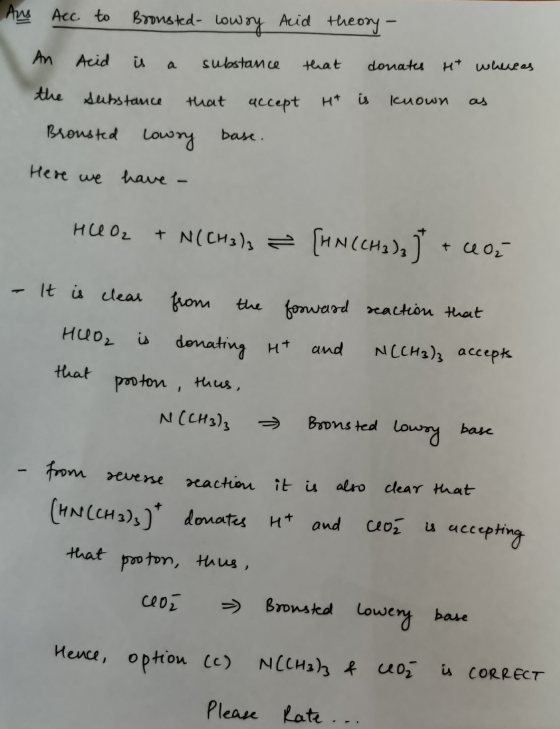 Ans Acc. to Bronsted-Lowry Acid theory -
An Acid is a substance that donates H⁺ whereas
the substance that accept H⁺ is known as
Bronsted Lowry base.
Here we have -
HClO₂ + N(CH₃)₃ ⇌ [HN(CH₃)₃]⁺ + ClO₂⁻
- It is clear from the forward reaction that
HClO₂ is donating H⁺ and N(CH₃)₃ accepts
that proton, thus,
N(CH₃)₃ ⇒ Bronsted Lowry base
- from reverse reaction it is also clear that
[HN(CH₃)₃]⁺ donates H⁺ and ClO₂⁻ is accepting
that proton, thus,
ClO₂⁻ ⇒ Bronsted Lowery base
Hence, option (c) N(CH₃)₃ & ClO₂⁻ is CORRECT
Please Rate...